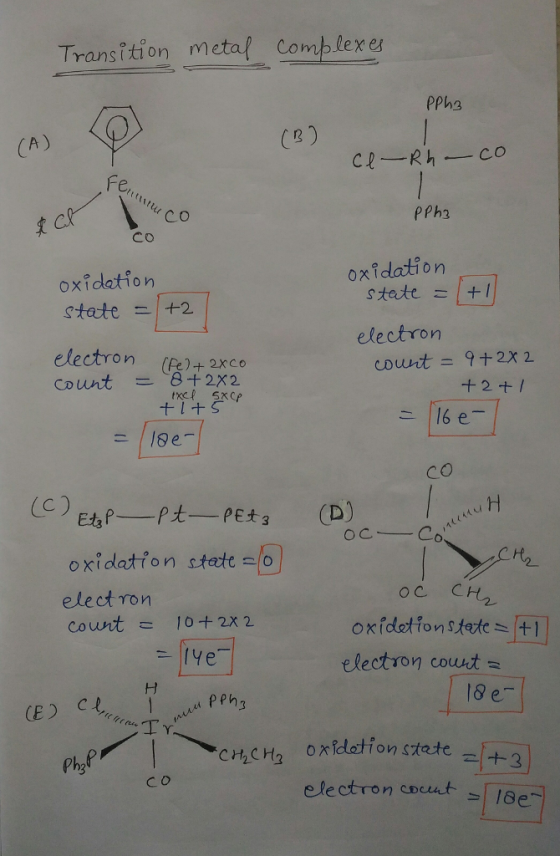 Transition metal complexes
(A)
Fe
Cl
CO
CO
oxidation
state = +2
electron (Fe) + 2xCO
count = 8+2x2
1xCl 5xCp
+1+5
= 18e-
(B)
PPh3
Cl—Rh—CO
PPh3
oxidation
state = +1
electron
count = 9+2x2
+2+1
= 16 e-
(C) Et3P—Pt—PEt3
oxidation state = 0
electron
count = 10+2x2
= 14e-
(D)
CO
H
OC—Co
CH2
OC CH2
oxidation state = +1
electron count =
18e-
(E)
H
Cl PPh3
Ir
Ph3P CH2CH3
CO
oxidation state = +3
electron count = 18e-